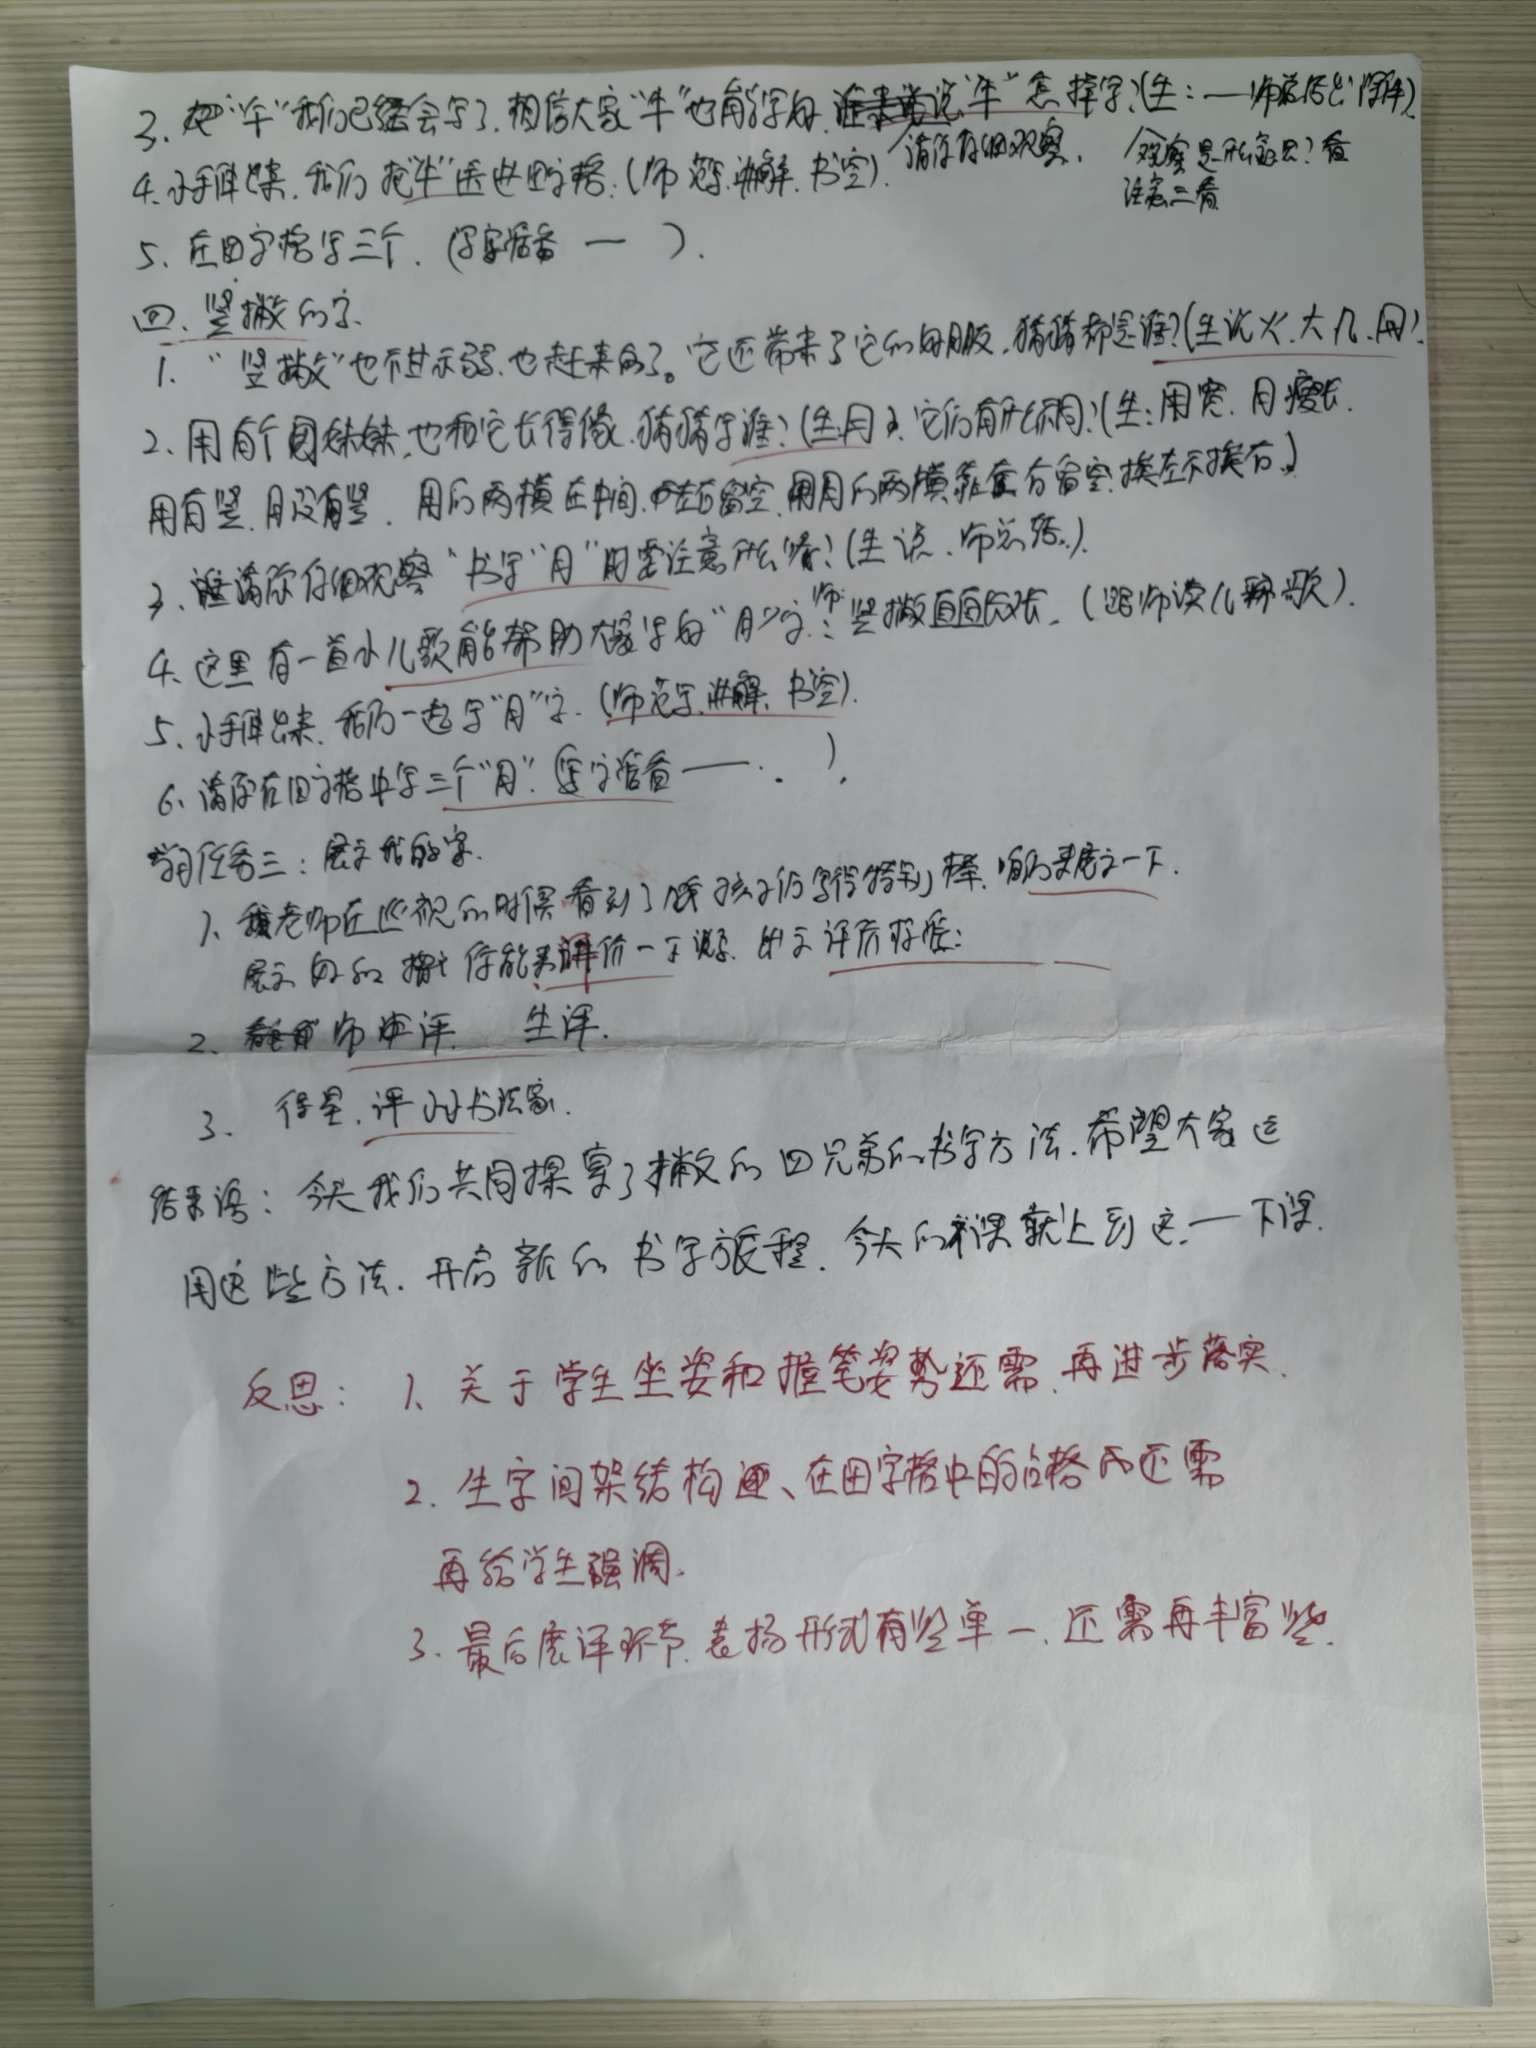 3、"午"我们已经会写了,相信大家"牛"也能写好,"牛"怎样写?(生:——师总结出)
请你仔细观察。 观察是什么意思?看
4、小手伸出来,我们把"牛"送进田字格:(师范写、讲解、书空)
注意二看
5、在田字格写三个。(写字语音 — )。
四、竖撇的字
1、"竖撇"也不甘示弱,也赶来了。它还带来了它的好朋友,猜猜都是谁?(生说火、大、几、用)
2、用有个妹妹,也和它长得像,猜猜是谁?(生:月)它们有什么不同?(生:用宽、月瘦长、
用有竖,月没有竖,用的两横在中间,左右留空,月的两横靠左右留空,挨左不挨右。)
3、请你仔细观察"书写"月"时要注意什么?(生说、师总结)。
4、这里有一首小儿歌能帮助大家写好"月"字。师:竖撇直直长长。(跟师读儿歌)。
5、小手伸出来,我们一起写"月"字。(师范字、讲解、书空)。
6、请你在田字格中写三个"月"。(写字语音——..)。
学习任务三:展示我的字
1、老师在巡视的时候看到了孩子们写得特别棒,咱们来展示一下。
展示 你能来评价一下吗 出示评价标准:
2、师评 生评.
3、得星,评小小书法家.
结束语:今天我们共同探寻了撇的四兄弟的书写方法,希望大家运
用这些方法,开启新的书写旅程,今天的课就上到这,——下课.
反思:1、关于学生坐姿和握笔姿势还需再进步落实.
2、生字间架结构、在田字格中的占格还需
再给学生强调.
3、最后展评环节,表扬形式有些单一,还需再丰富些.